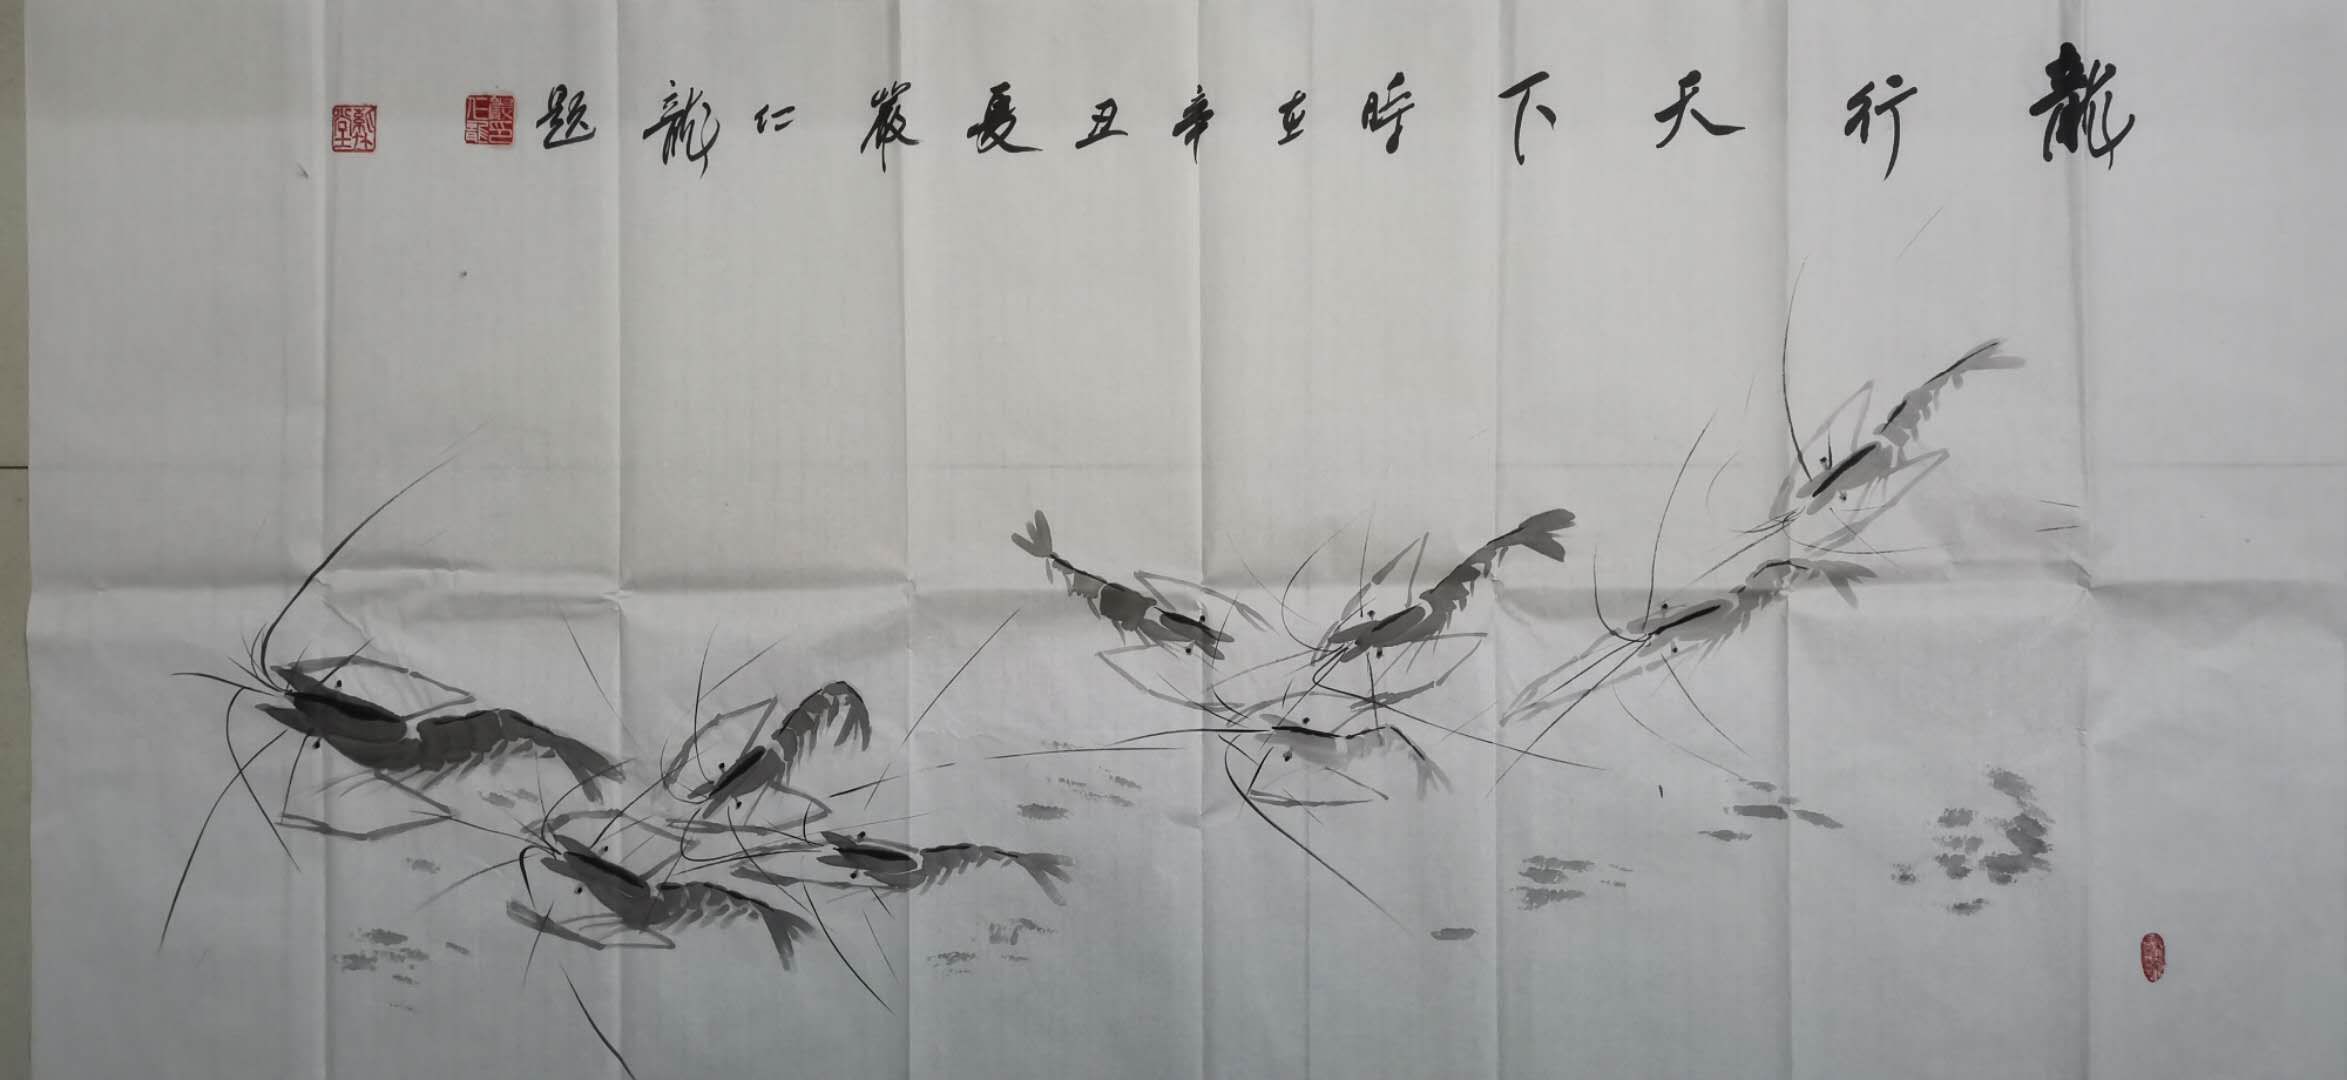 龍行天下時在辛丑夏嚴仁龍題